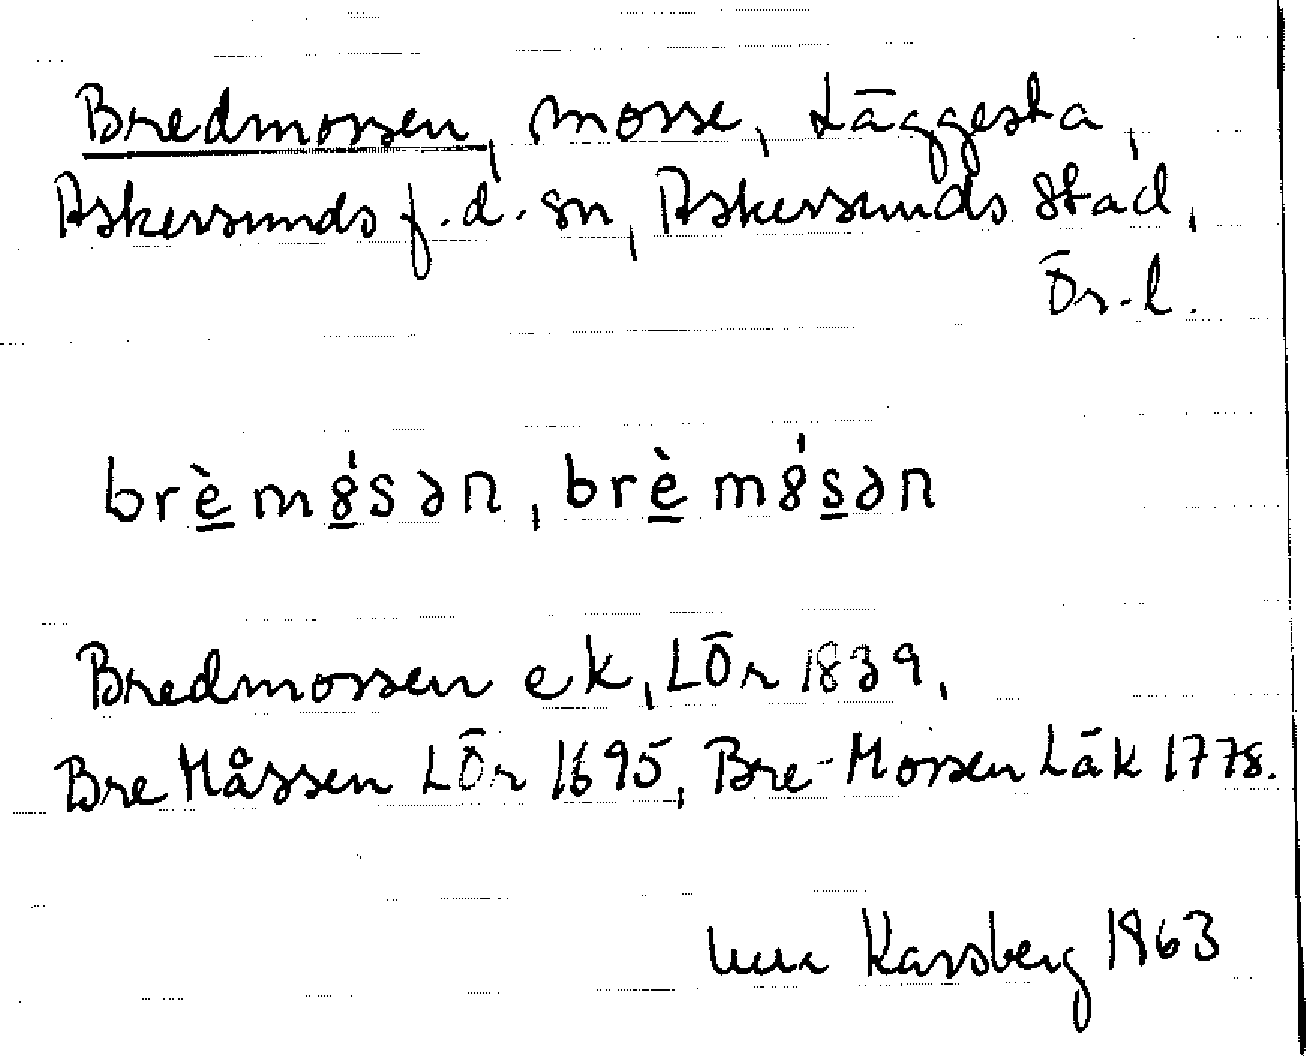 Bredmossen, mosse, Läggesta,
Askersunds f.d. sn, Askersunds stad,
Ör. l.
brè̱ mȣ̱́sən, brè̱ mȣ́s̱ən
Bredmossen ek, LÖr 1839,
Bre Måssen LÖr 1695, Bre-Mossen Läk 1778.
Karsberg 1963